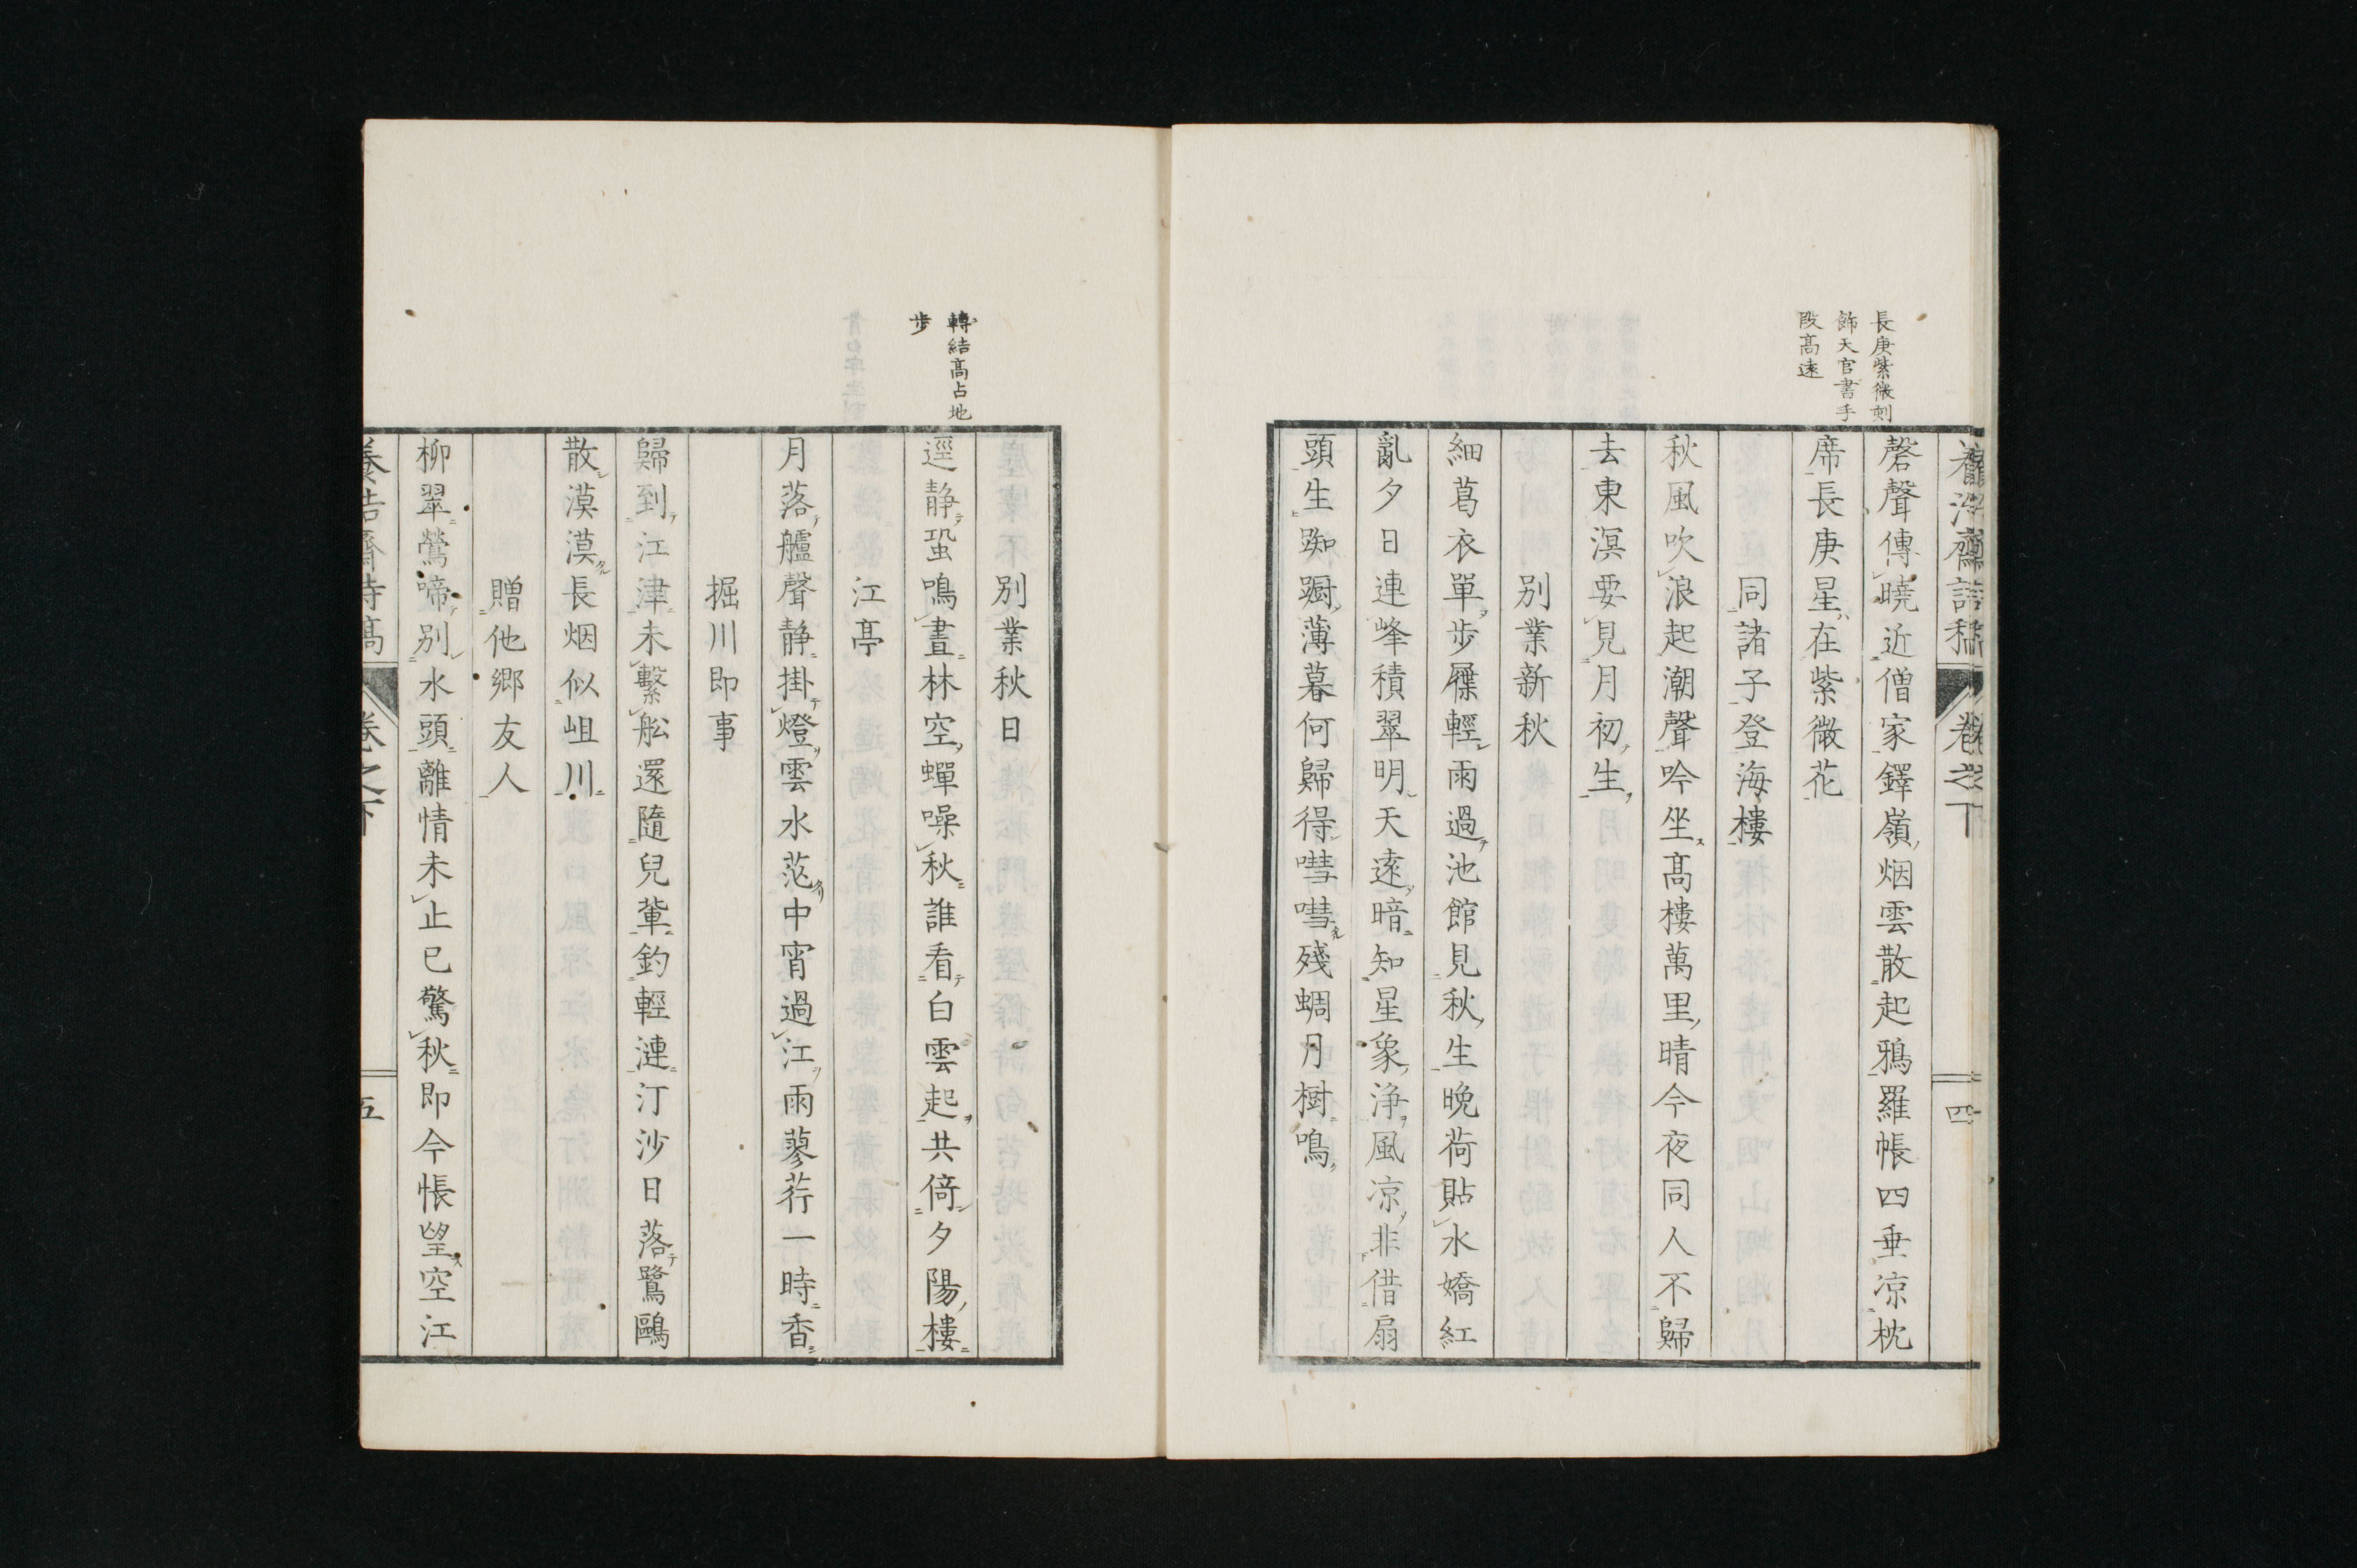 長庚紫微刻
飾天官書手
段高遠
磬聲傳曉近僧家鐸嶺烟雲散起鴉羅帳四垂凉枕
席長庚星在紫微花
同諸子登海樓
秋風吹浪起潮聲吟坐高樓萬里晴今夜同人不歸
去東溟要見月初生
別業新秋
細葛衣單步屧輕雨過池館見秋生晚荷貼水嬌紅
亂夕日連峰積翠明天遠暗知星象浄風凉非借扇
頭生踟蹰薄暮何歸得嘒嘒殘蜩月樹鳴
卷之下
四
轉結高占地
步
別業秋日
逕静蛩鳴晝林空蟬噪秋誰看白雲起共倚夕陽樓
江亭
月落艫聲静掛燈雲水茫中宵過江雨蓼荇一時香
掘川即事
歸到江津未繫舩還隨兒輩釣輕漣汀沙日落鷺鷗
散漠漠長烟似岨川
贈他鄉友人
柳翠鶯啼別水頭離情未止已驚秋即今悵望空江
卷之下
五